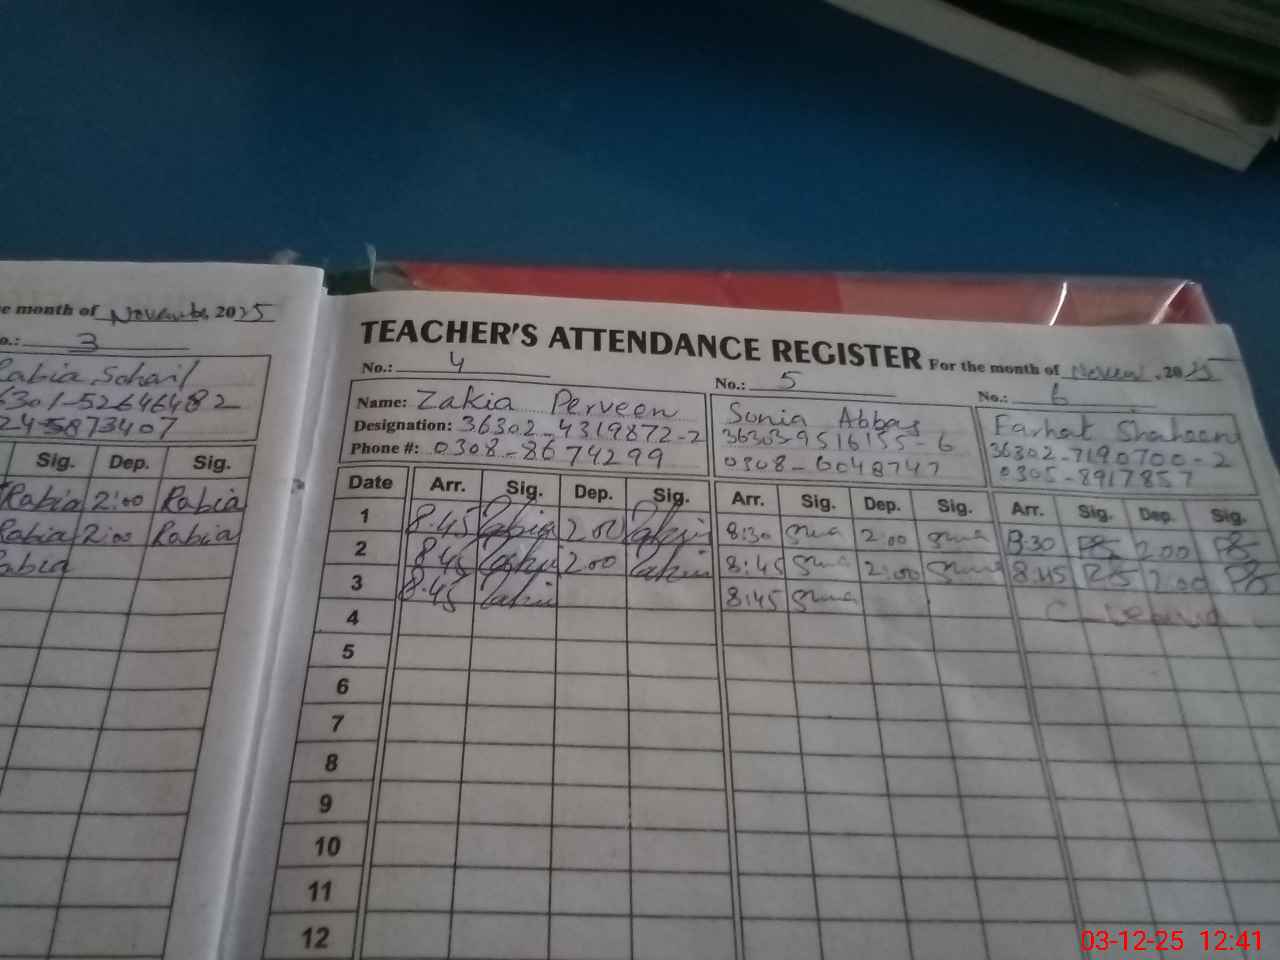 e month of November 2025
o.: 3
Rabia Sohail
6301-52646482
245873407
Sig. Dep. Sig.
Rabia 2:00 Rabia
Rabia 2:00 Rabia
Rabia
TEACHER'S ATTENDANCE REGISTER For the month of 2025
No.: 4 No.: 5 No.: 6
Name: Zakia Perveen Sonia Abbas Farhat Shaheen
Designation: 36302-4319872-2 36303-9516155-6 36302-7190700-2
Phone #: 0308-8674299 0308-6048747 0305-8917857
Date Arr. Sig. Dep. Sig. Arr. Sig. Dep. Sig. Arr. Sig. Dep. Sig.
1 8:45 Zakia 2:00 Zakia 8:30 2:00 8:30 2:00
2 8:45 Zakia 2:00 Zakia 8:45 2:00 8:45 2:00
3 8:45 Zakia 8:45 C
4
5
6
7
8
9
10
11
12
03-12-25 12:41